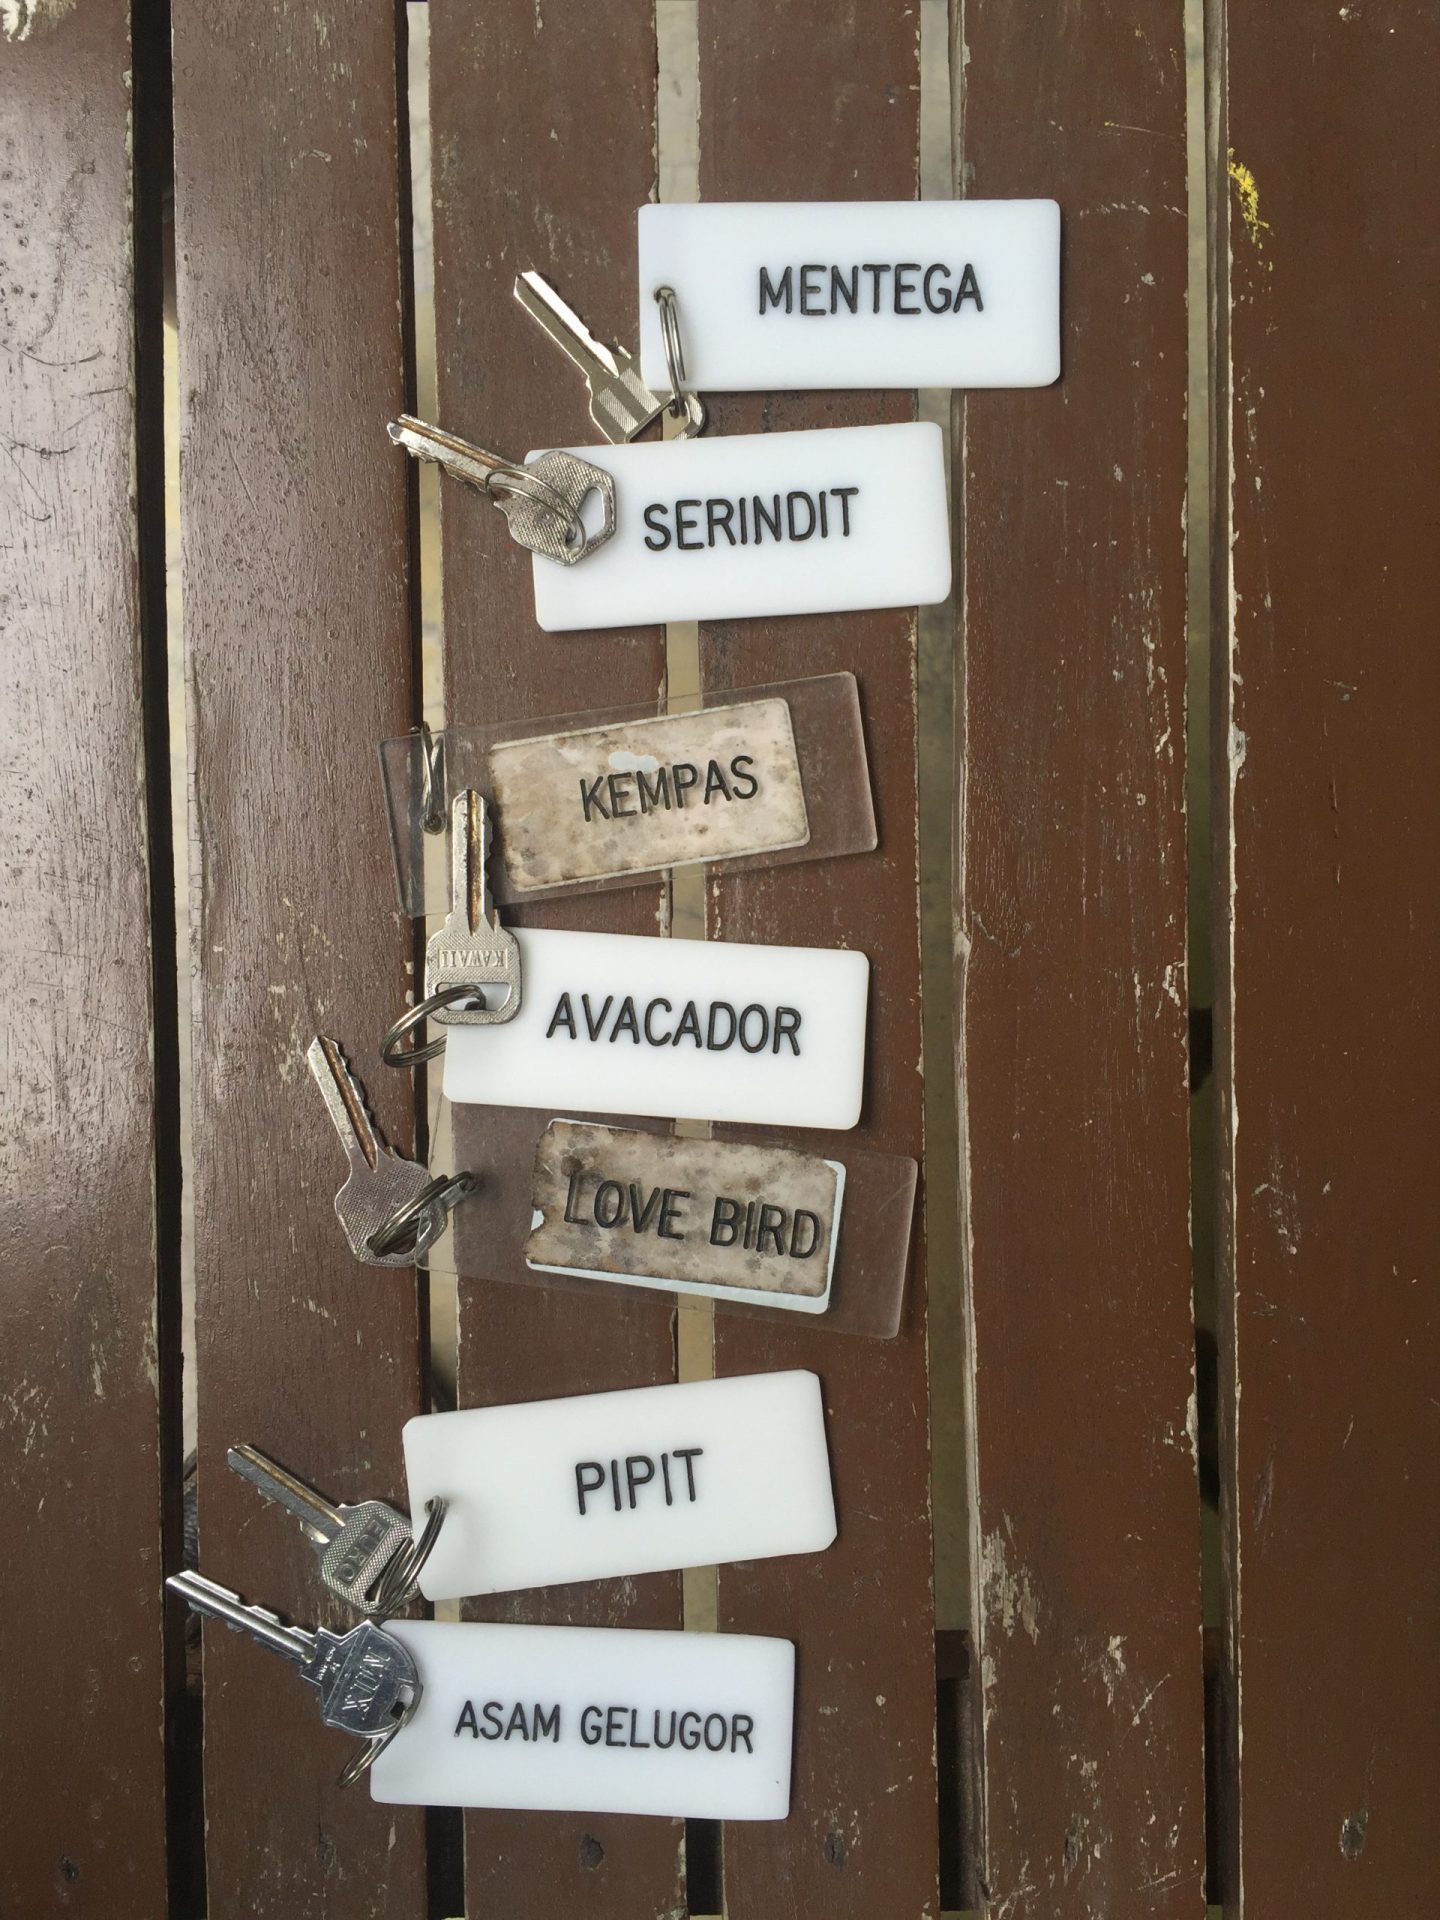 MENTEGA
SERINDIT
KEMPAS
KAWAII
AVACADOR
LOVE BIRD
PIPIT
ASAM GELUGOR